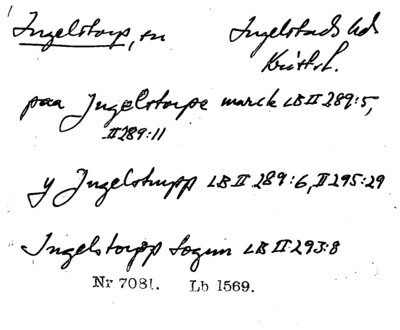 Ingelstorp, sn Ingelstads hd
Krist.l.
paa Ingelstorpe marck LB II 289:5,
II 289:11
y Ingelstrupp LB II 289:6, II 295:29
Ingelstorpp sognn LB II 293:8
Nr 7081. Lb 1569.